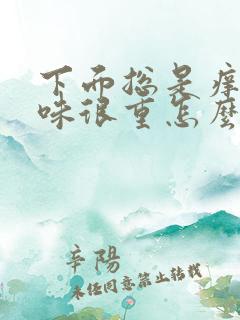 下面总是痒
味很重怎麽
辛陽
未经同意禁止转载